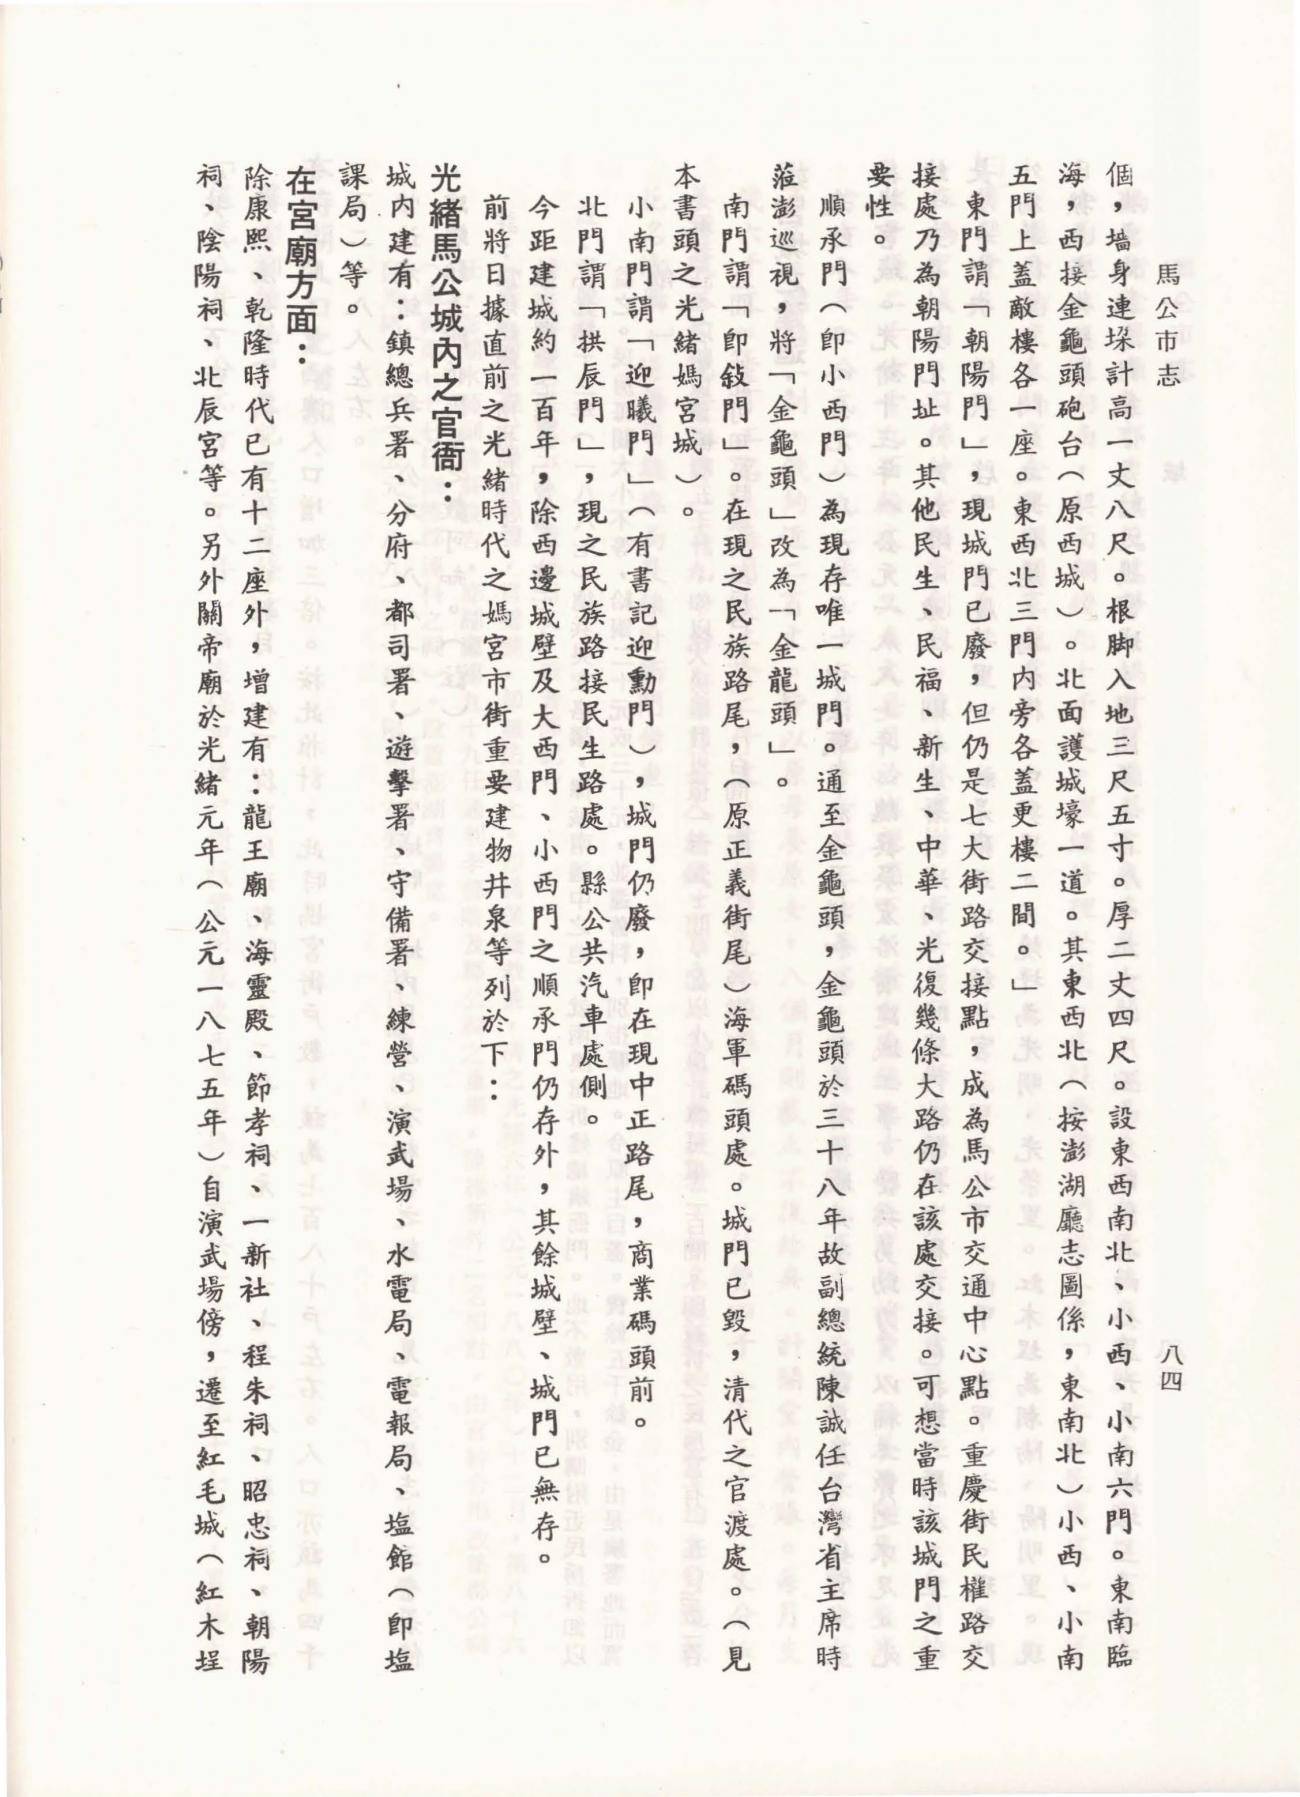 馬公市志
八四
個，墻身連垛計高一丈八尺。根脚入地三尺五寸。厚二丈四尺。設東西南北、小西、小南六門。東南臨
海，西接金龜頭砲台（原西城）。北面護城壕一道。其東西北（按澎湖廳志圖係，東南北）小西、小南
五門上蓋敵樓各一座。東西北三門內旁各蓋更樓二間。」
東門謂「朝陽門」，現城門已廢，但仍是七大街路交接點，成為馬公市交通中心點。重慶街民權路交
接處乃為朝陽門址。其他民生、民福、新生、中華、光復幾條大路仍在該處交接。可想當時該城門之重
要性。
順承門（卽小西門）為現存唯一城門。通至金龜頭，金龜頭於三十八年故副總統陳誠任台灣省主席時
蒞澎巡視，將「金龜頭」改為「金龍頭」。
南門謂「卽敍門」。在現之民族路尾，（原正義街尾）海軍碼頭處。城門已毀，清代之官渡處。（見
本書頭之光緒媽宮城）。
小南門謂「迎曦門」（有書記迎勳門），城門仍廢，卽在現中正路尾，商業碼頭前。
北門謂「拱辰門」，現之民族路接民生路處。縣公共汽車處側。
今距建城約一百年，除西邊城壁及大西門、小西門之順承門仍存外，其餘城壁、城門已無存。
前將日據直前之光緒時代之媽宮市街重要建物井泉等列於下：
光緒馬公城內之官衙：
城內建有：鎮總兵署、分府、都司署、遊擊署、守備署、練營、演武場、水電局、電報局、塩館（卽塩
課局）等。
在宮廟方面：
除康熙、乾隆時代已有十二座外，增建有：龍王廟、海靈殿、節孝祠、一新社、程朱祠、昭忠祠、朝陽
祠、陰陽祠、北辰宮等。另外關帝廟於光緒元年（公元一八七五年）自演武場傍，遷至紅毛城（紅木埕